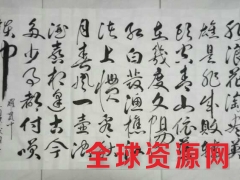 花淘尽英
雄是非成敗轉
头空青山依旧
在幾度夕陽
紅白髮渔樵江
渚上慣看秋
月春風一壶濁
酒喜相逢古今
多少事都付笑
談中
全球资源网